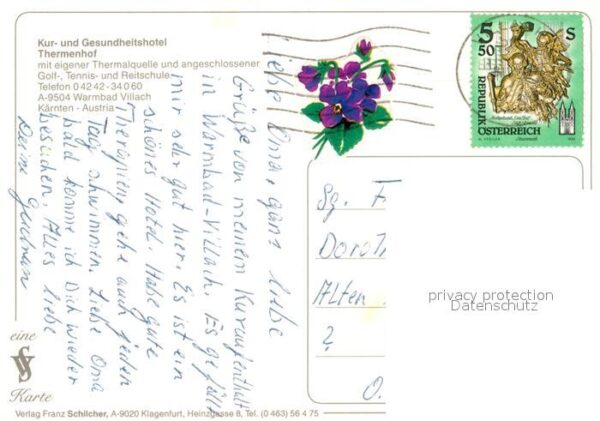 Kur- und Gesundheitshotel
Thermenhof
mit eigener Thermalquelle und angeschlossener
Golf-, Tennis- und Reitschule
Telefon 0 42 42 - 3 40 60
A-9504 Warmbad Villach
Kärnten - Austria
Liebe Oma, ganz liebe
Grüße von meinem Kuraufenthalt
in Warmbad-Villach. Es gefällt
mir sehr gut hier. Es ist ein
schönes Hotel. Habe gute
Therapien, gehe auch jeden
Tag schwimmen. Liebe Oma
bald komme ich Dich wieder
besuchen. Alles liebe
Deine
5 50 S
REPUBLIK
ÖSTERREICH
Sg. F
Doroth
Alten
?
O.
privacy protection
Datenschutz
eine
VS
Karte
Verlag Franz Schilcher, A-9020 Klagenfurt, Heinzgasse 8, Tel. (0 463) 56 4 75